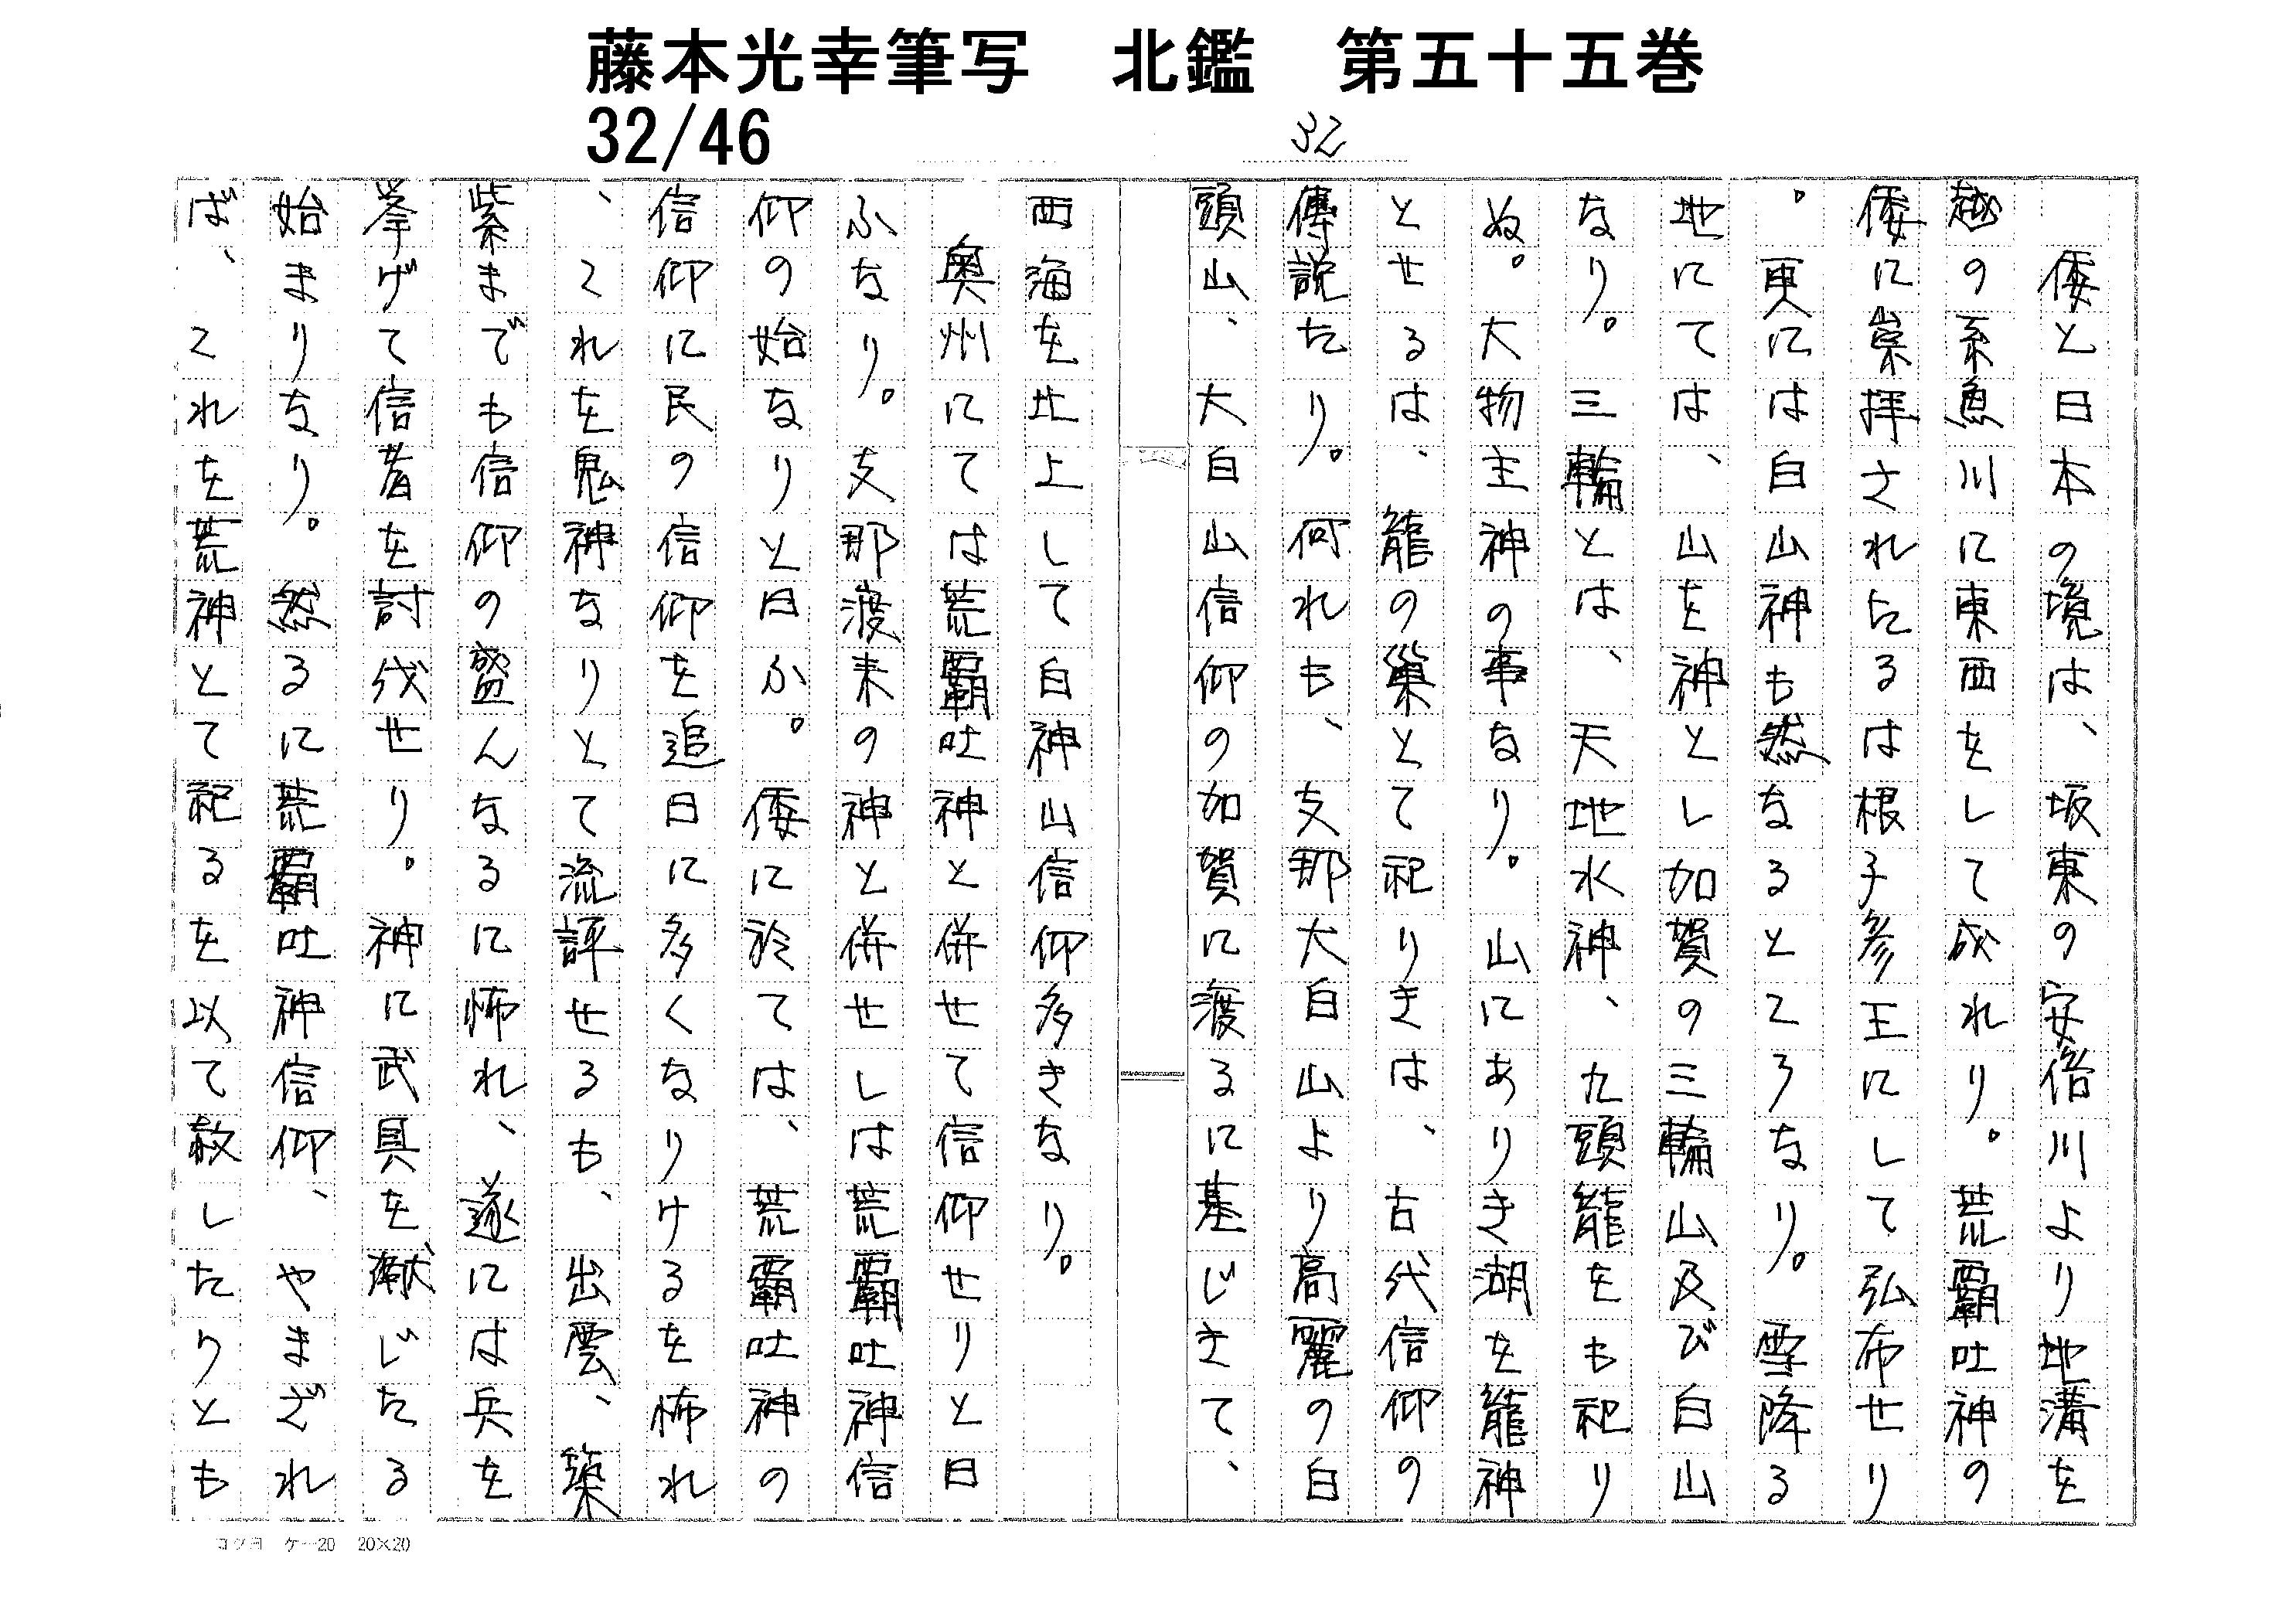 藤本光幸筆写　北鑑　第五十五巻
32/46
32
倭と日本の境は、坂東の安倍川より地溝を
越の糸魚川に東西をして成れり。荒覇吐神の
倭に崇拝されたるは根子彦王にして弘布せり
。更には白山神も然なるところなり。雪降る
地にては、山を神とし加賀の三輪山及び白山
なり。三輪とは、天地水神、九頭龍をも祀り
ぬ。大物主神の事なり。山にありき湖を龍神
とせるは、龍の巣とて祀りきは、古代信仰の
傳説たり。何れも、支那大白山より高麗の白
頭山、大白山信仰の加賀に渡るに基じきて、
西海を北上して白神山信仰多きなり。
奥州にては荒覇吐神と併せて信仰せりと曰
ふなり。支那渡来の神と併せしは荒覇吐神信
仰の始なりと曰ふ。倭に於ては、荒覇吐神の
信仰に民の信仰を追日に多くなりけるを怖れ
、これを鬼神なりとて流評せるも、出雲、築
紫までも信仰の盛んなるに怖れ、遂には兵を
挙げて信者を討伐せり。神に武具を献じたる
始まりなり。然るに荒覇吐神信仰、やまざれ
ば、これを荒神とて祀るを以て赦したりとも
コクヨ　ケー20　20×20